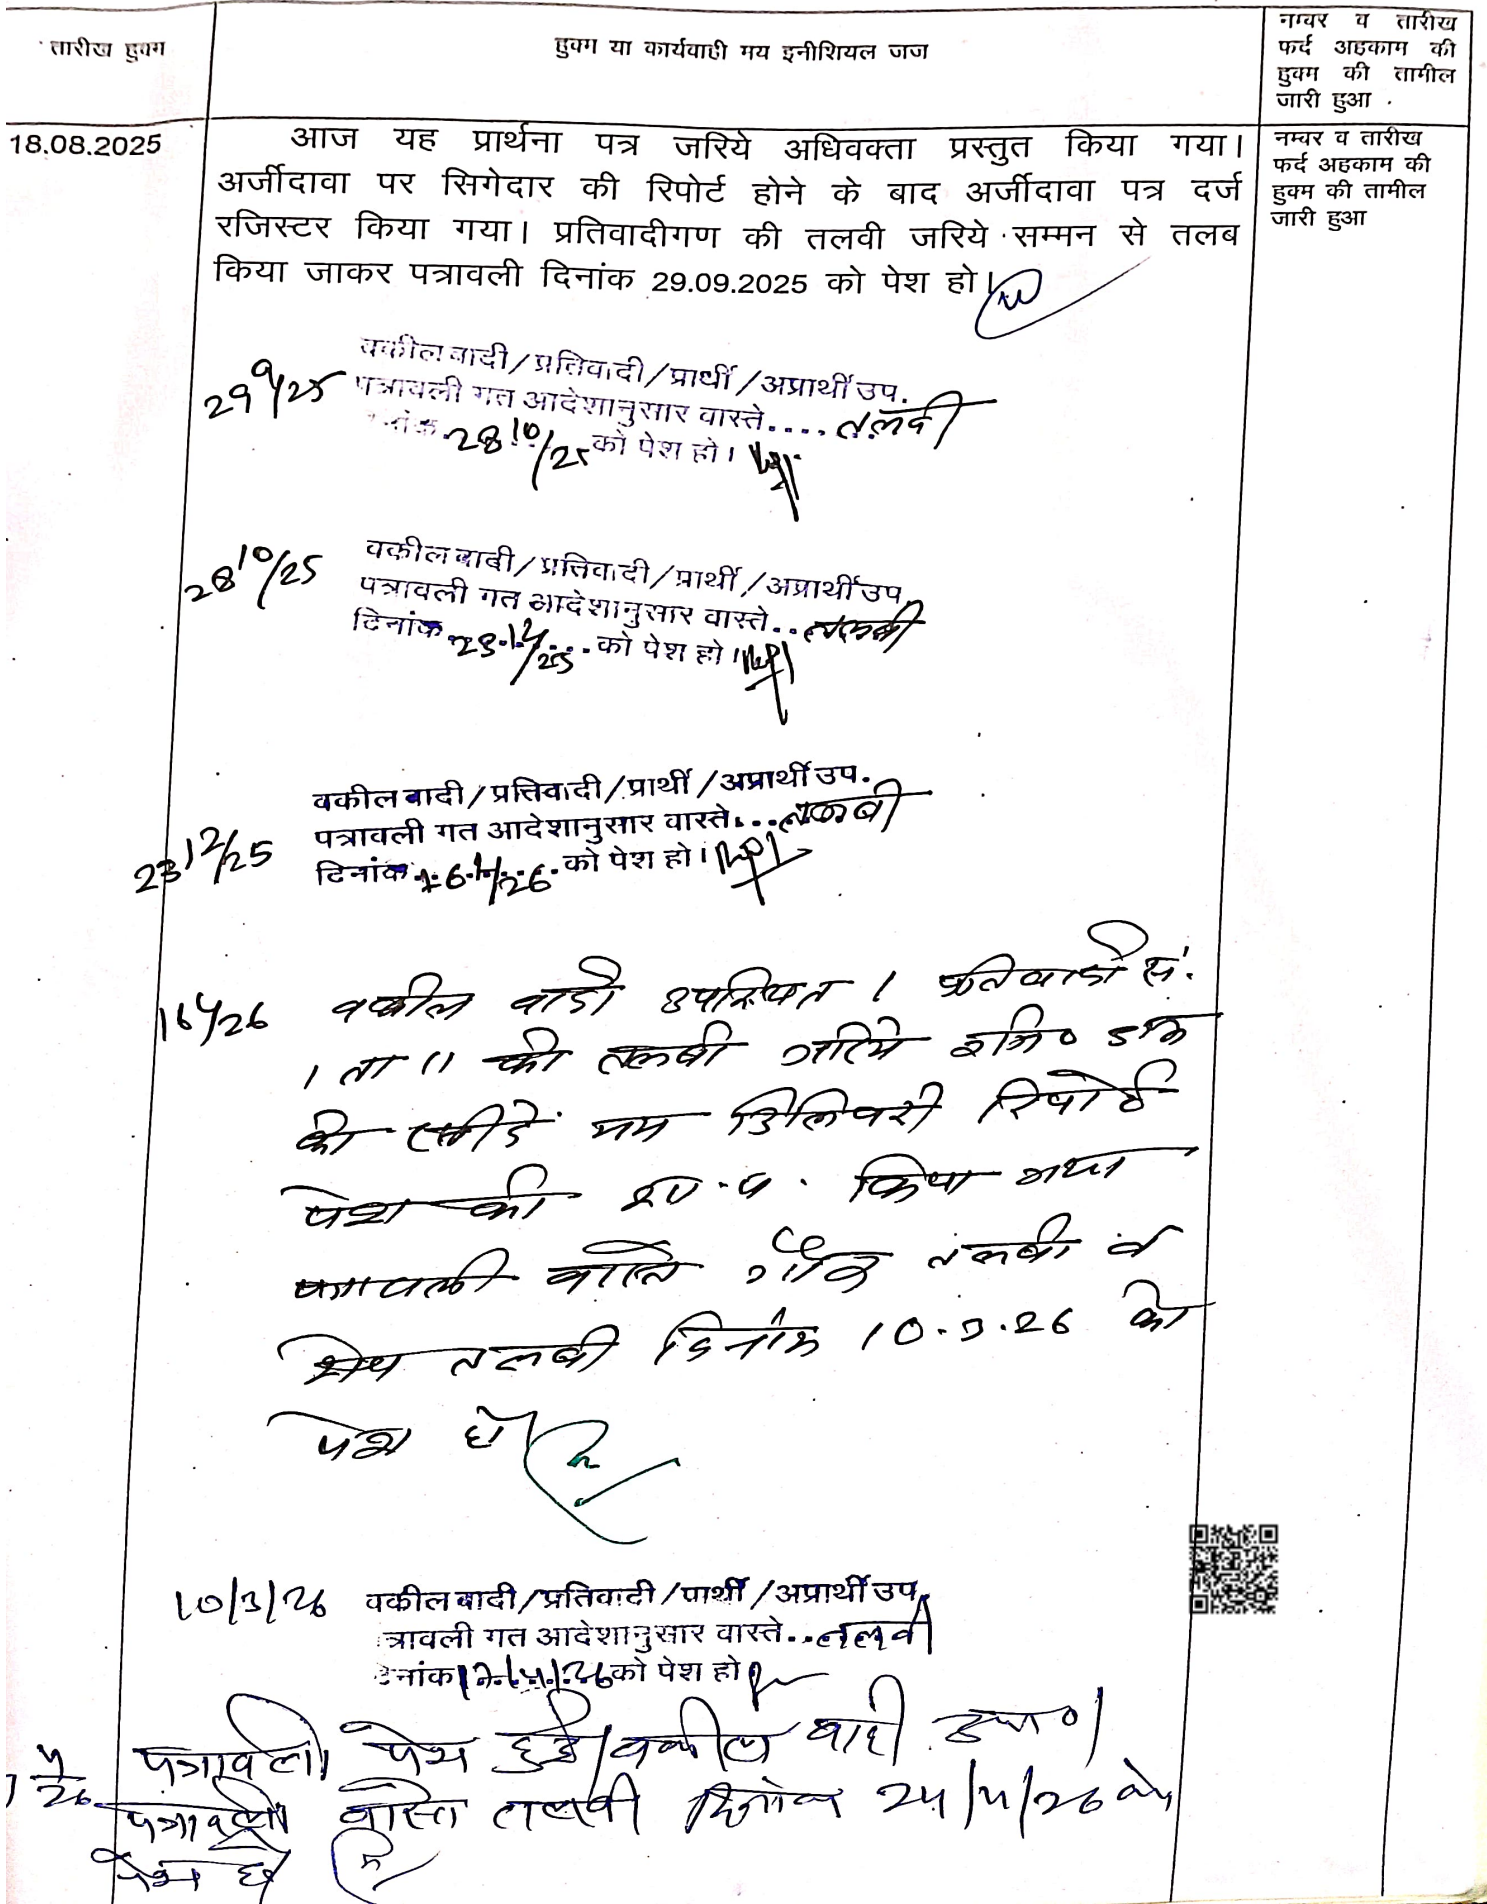 तारीख हुक्म
हुक्म या कार्यवाही मय इनीशियल जज
नम्बर व तारीख
फर्द अहकाम की
हुक्म की तामील
जारी हुआ
18.08.2025
आज यह प्रार्थना पत्र जरिये अधिवक्ता प्रस्तुत किया गया।
अर्जीदावा पर सिगेदार की रिपोर्ट होने के बाद अर्जीदावा पत्र दर्ज
रजिस्टर किया गया। प्रतिवादीगण की तलवी जरिये सम्मन से तलब
किया जाकर पत्रावली दिनांक 29.09.2025 को पेश हो।
नम्वर व तारीख
फर्द अहकाम की
हुक्म की तामील
जारी हुआ
29 9/25
वकील वादी/प्रतिवादी/प्रार्थी/अप्रार्थी उप.
पत्रावली गत आदेशानुसार वास्ते.... तलवी
28 10/25 को पेश हो।
28 10/25
वकील वादी/प्रतिवादी/प्रार्थी/अप्रार्थी उप.
पत्रावली गत आदेशानुसार वास्ते.. तलबी
दिनांक 23.12/25 को पेश हो।
23 12/25
वकील वादी/प्रतिवादी/प्रार्थी/अप्रार्थी उप.
पत्रावली गत आदेशानुसार वास्ते... तलबी
दिनांक 16.1/26 को पेश हो।
16 1/26
वकील वादी उपस्थित। प्रतिवादी सं.
1 ता 11 की तलबी जरिये रजि० डाक
की रसीदें मय डिलिवरी रिपोर्ट
पेश की किया गया
पत्रावली वास्ते तलबी व
शेष तलबी दिनांक 10.3.26 को
पेश हो
10/3/26
वकील वादी/प्रतिवादी/प्रार्थी/अप्रार्थी उप.
त्रावली गत आदेशानुसार वास्ते.. तलवी
नांक 17/4/26 को पेश हो
पत्रावली पेश हुई। वकील वादी उप०।
4/26 पत्रावली वास्ते तलवी दिनांक 24/4/26 को
पेश हो